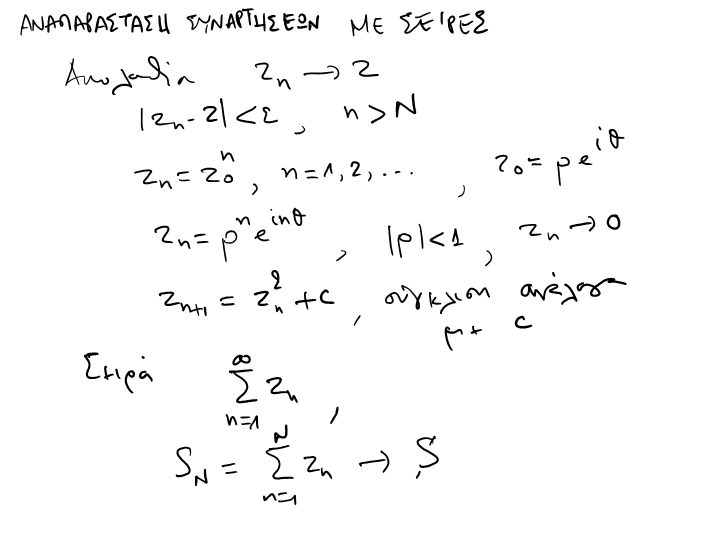 ΑΝΑΠΑΡΑΣΤΑΣΗ ΣΥΝΑΡΤΗΣΕΩΝ ΜΕ ΣΕΙΡΕΣ
Ακολουθία z_n → z
|z_n - z| < ε, n > N
z_n = z_0^n, n = 1, 2, ..., z_0 = ρe^{iθ}
z_n = ρ^n e^{inθ}, |ρ| < 1, z_n → 0
z_{n+1} = z_n^2 + c, σύγκλιση ανάλογα
με c
Σειρά ∑_{n=1}^{∞} z_n,
S_N = ∑_{n=1}^{N} z_n → S